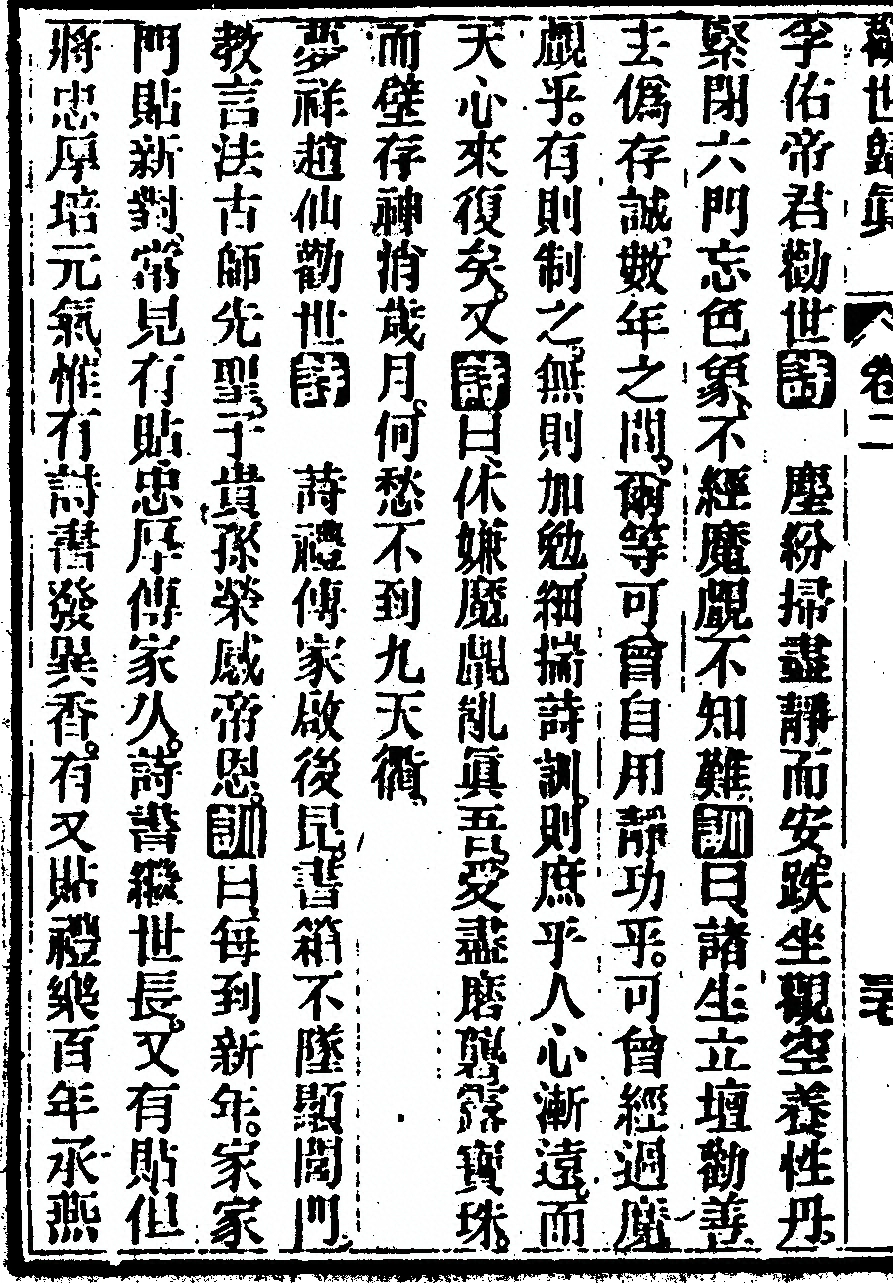 觀世歸真　卷二
李佑帝君勸世詩　塵紛掃盡靜而安。趺坐觀空養性丹。
緊閉六門忘色象、不經魔覷不知難、訓曰、諸生立壇勸善、
去僞存誠、數年之間。爾等可曾自用靜功乎。可曾經過魔
覷乎。有則制之、無則加勉、細揣詩訓。則庶乎人心漸遠。而
天心來復矣。又詩曰、休嫌魔覷亂真吾。愛盡磨礱露寶珠。
而壁存神消歲月。何愁不到九天衢。
夢祥趙仙勸世詩　詩禮傳家啟後昆。書箱不墜顯閥門。
教言法古師先聖。子貴孫榮感帝恩。訓曰、每到新年。家家
門貼新對、常見有貼忠厚傳家久。詩書繼世長。又有貼但
將忠厚培元氣、惟有詩書發異香。有又貼禮樂百年承燕